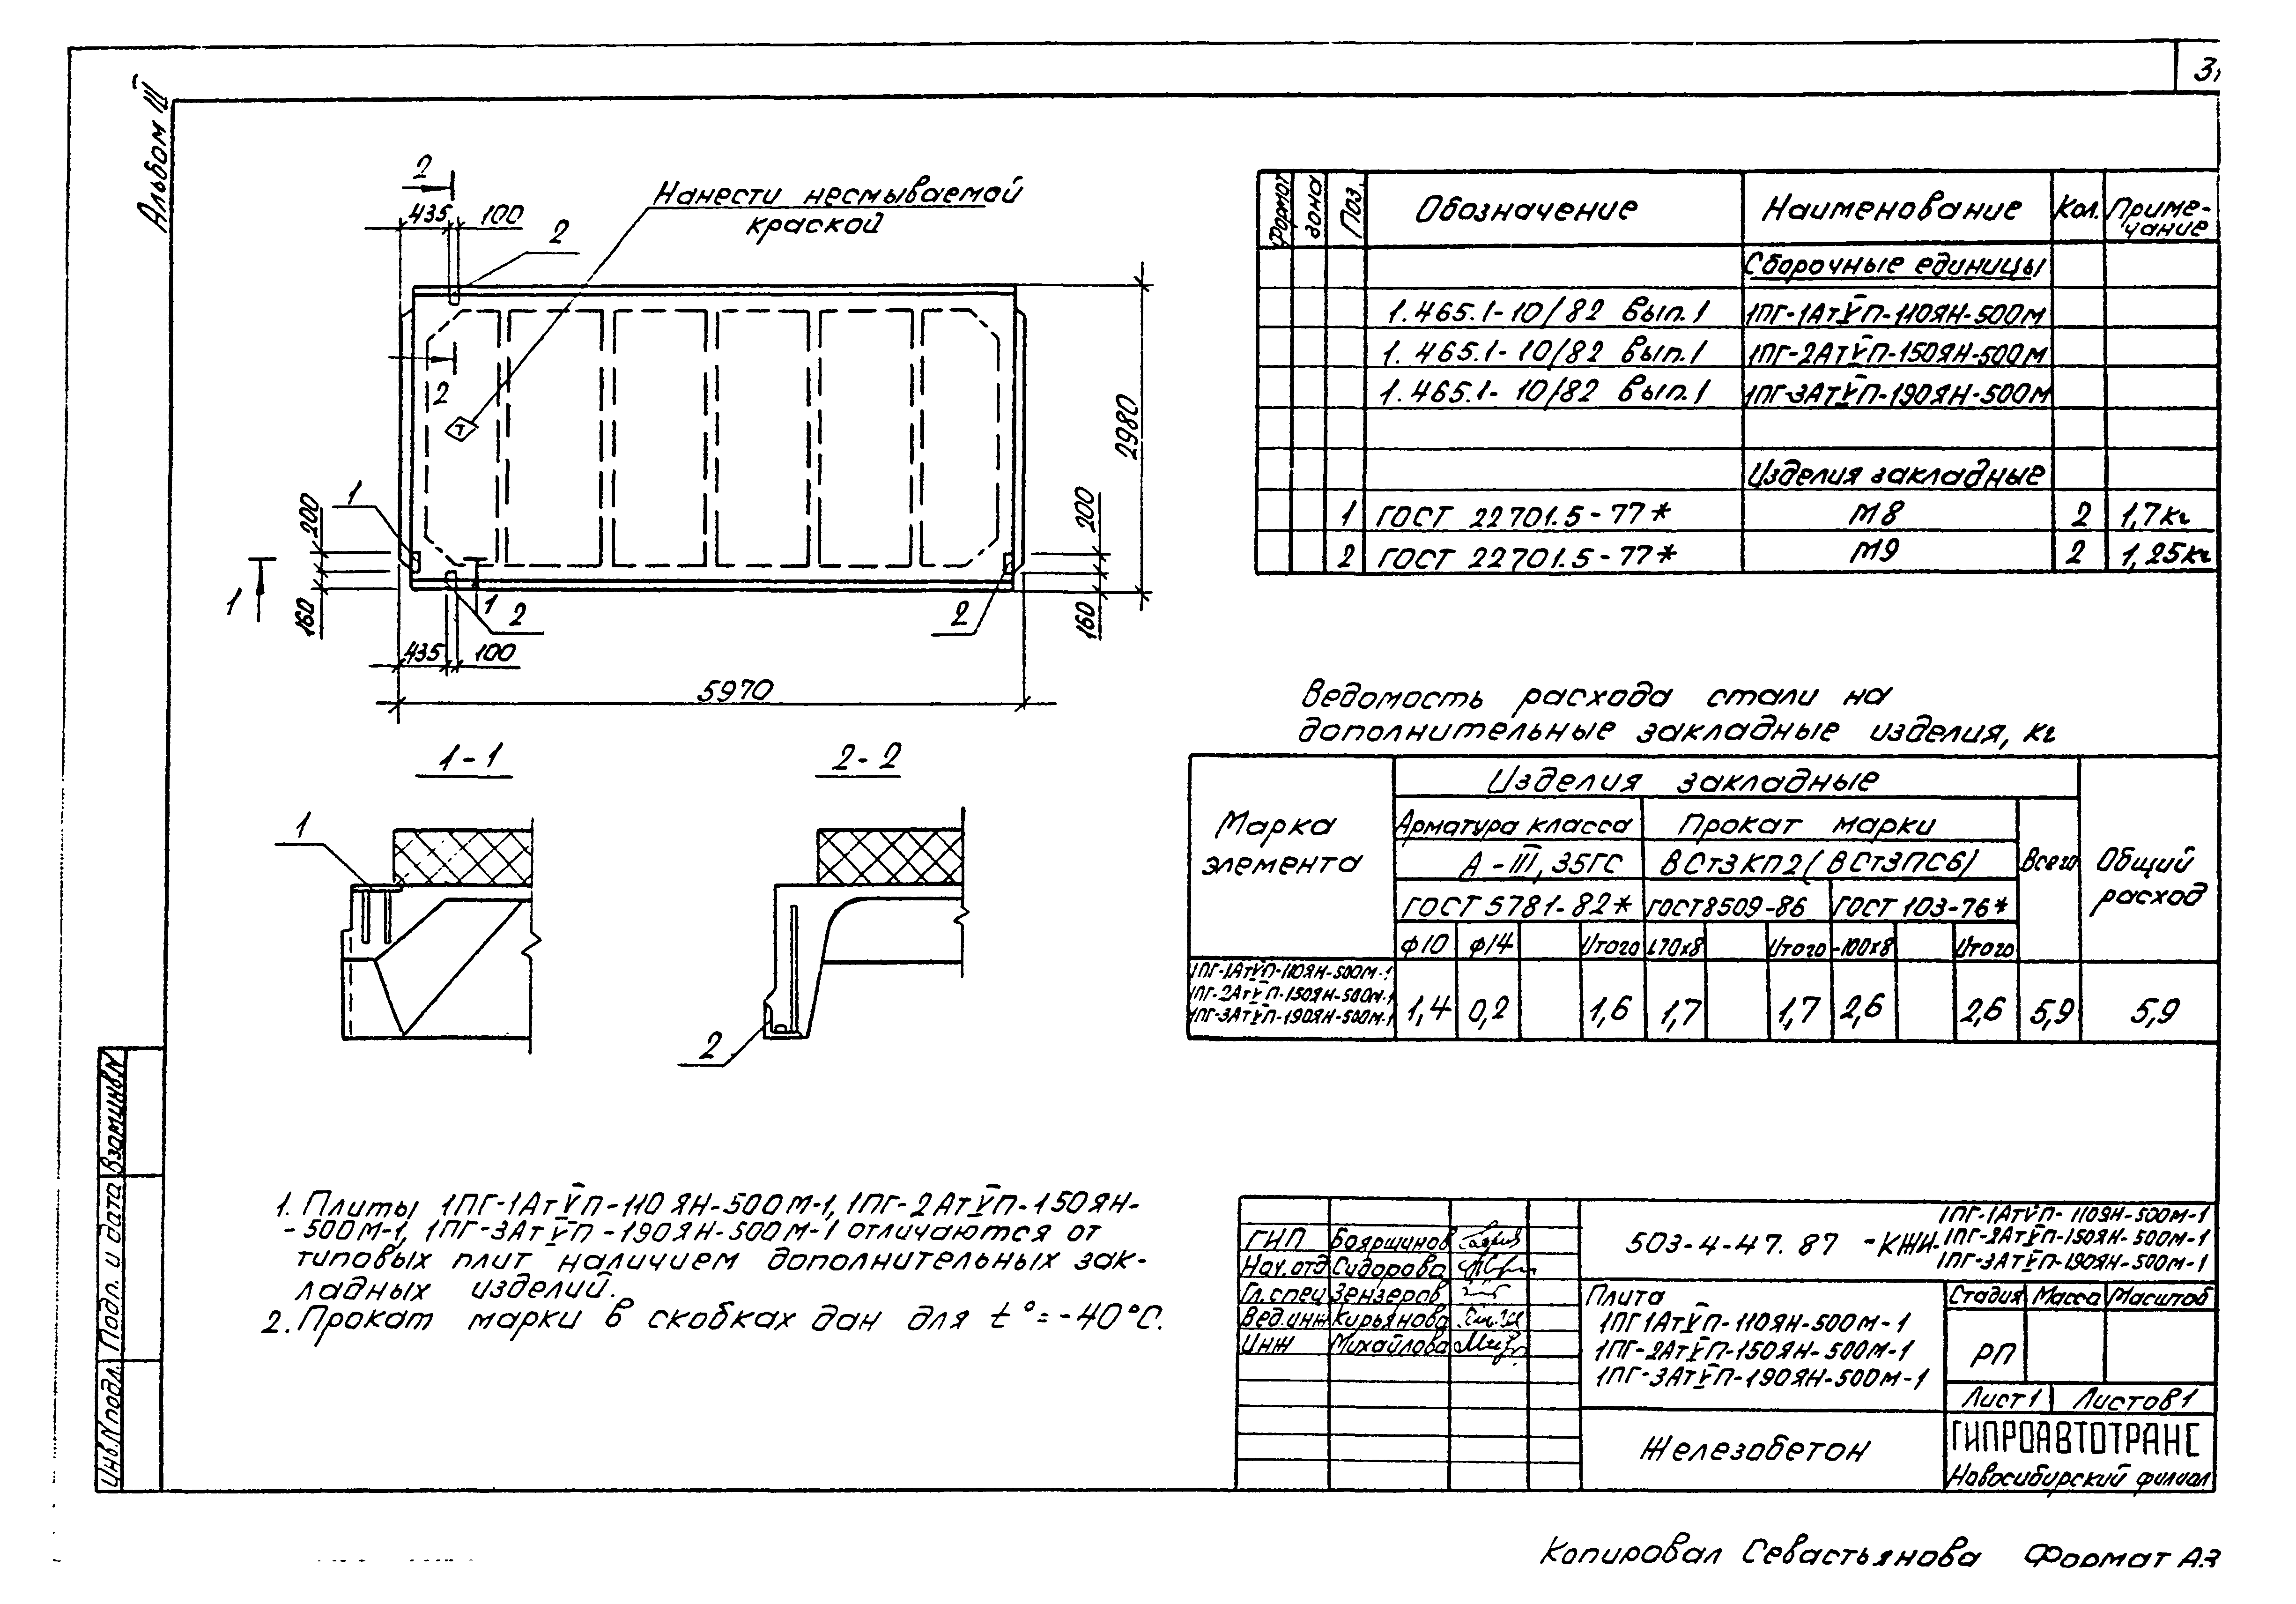 3
Альбом III
2
435 100
2
Нанести несмываемой
краской
2
т
2980
1
200
160
1
1
2
2
200
160
435 100
5970
1-1
1
2-2
2
Формат
Зона
Поз.
Обозначение
Наименование
Кол.
Приме-
чание
Сборочные единицы
1.465.1-10/82 вып.1 1ПГ-1АтVП-110ЯН-500М
1.465.1-10/82 вып.1 1ПГ-2АтVП-150ЯН-500М
1.465.1-10/82 вып.1 1ПГ-3АтVП-190ЯН-500М
Изделия закладные
1 ГОСТ 22701.5-77* М8 2 1,7кг
2 ГОСТ 22701.5-77* М9 2 1,25кг
Ведомость расхода стали на
дополнительные закладные изделия, кг
Марка
элемента
Изделия закладные
Арматура класса
А-III, 35ГС
Прокат марки
ВСт3КП2(ВСт3ПС6)
Всего
Общий
расход
ГОСТ 5781-82* ГОСТ8509-86 ГОСТ 103-76*
ф10 ф14 Итого L70х8 Итого -100х8 Итого
1ПГ-1АтVП-110ЯН-500М-1
1ПГ-2АтVП-150ЯН-500М-1
1ПГ-3АтVП-190ЯН-500М-1
1,4 0,2 1,6 1,7 1,7 2,6 2,6 5,9 5,9
1. Плиты 1ПГ-1АтVП-110ЯН-500М-1, 1ПГ-2АтVП-150ЯН-
-500М-1, 1ПГ-3АтVП-190ЯН-500М-1 отличаются от
типовых плит наличием дополнительных зак-
ладных изделий.
2. Прокат марки в скобках дан для t°=-40°С.
Взам.инв.N
Подп. и дата
Инв.N подл.
ГИП Бояршинов
Нач.отд Сидорова
Гл.спец Зензеров
Вед.инж Кирьянова
Инж Михайлова
503-4-47.87 -КЖИ-
1ПГ-1АтVП-110ЯН-500М-1
1ПГ-2АтVП-150ЯН-500М-1
1ПГ-3АтVП-190ЯН-500М-1
Плита
1ПГ1АтVП-110ЯН-500М-1
1ПГ-2АтVП-150ЯН-500М-1
1ПГ-3АтVП-190ЯН-500М-1
Стадия Масса Масштаб
РП
Лист1 Листов1
Железобетон
ГИПРОАВТОТРАНС
Новосибирский филиал
Копировал Севастьянова Формат А3